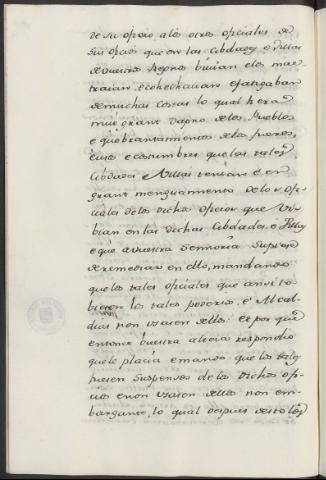 de su oficio a los otros oficiales de
sus oficios que en las Cibdades e Villas
de vuestros Regnos bivian e los mal
traian, e cohechavan e fatigaban
de muchas cosas lo qual hera
mui grant dapno de los Pueblos
e quebrantamiento de los fueros,
e usos e costumbres que las tales
Cibdades e Villas tenian e en
grant menguamiento de los ofi-
ciales de los dichos oficios que vi-
bian en las dichas Cibdades, e Villas
e que a vuestra Sennoria supiese
de remediar en ello, mandando
que los tales oficiales que ansi to-
biesen los tales poderes, e Alcal-
dias non usasen dellos: et por que
entonce vuestra alteza respondio
que le placia e mando que los tales
fuesen suspensos de los dichos ofi-
cios e non usasen dellos non em-
bargante, lo qual despues desto los